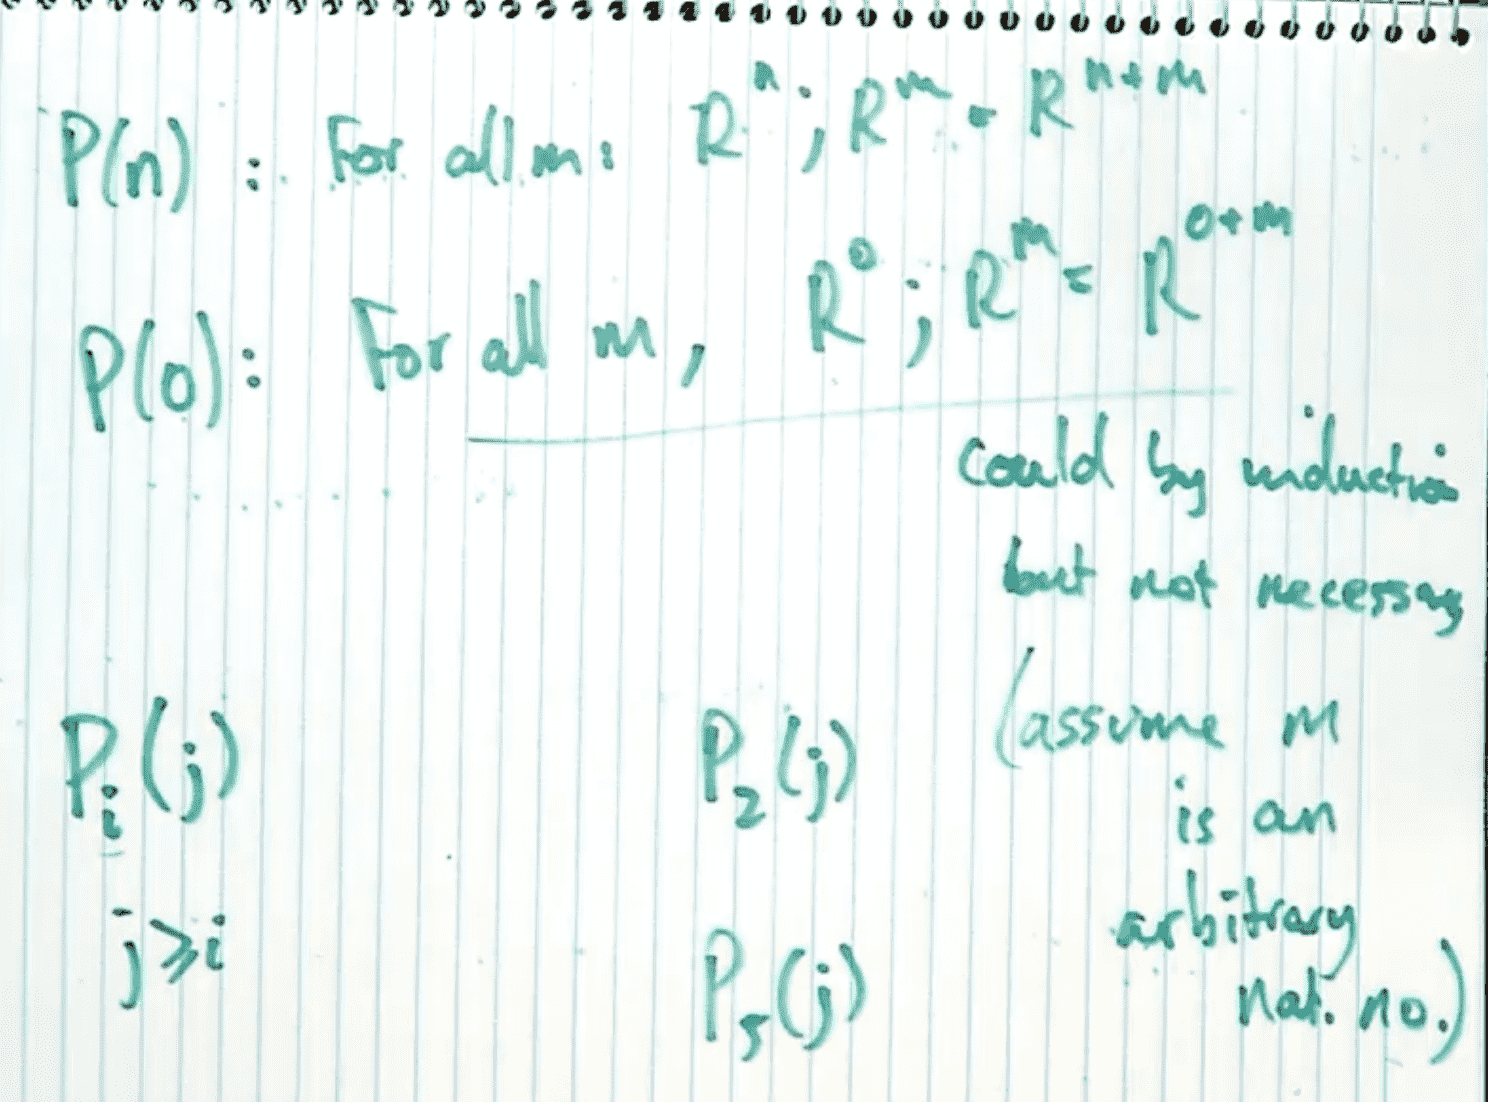 P(n) : For all m : Rⁿ ; Rᵐ = Rⁿ⁺ᵐ
P(0) : For all m , R⁰ ; Rᵐ = R⁰⁺ᵐ
could by induction
but not necessary
(assume m
is an
arbitrary
nat. no.)
Pᵢ(j)
j ⩾ i
P₂(j)
P₅(j)